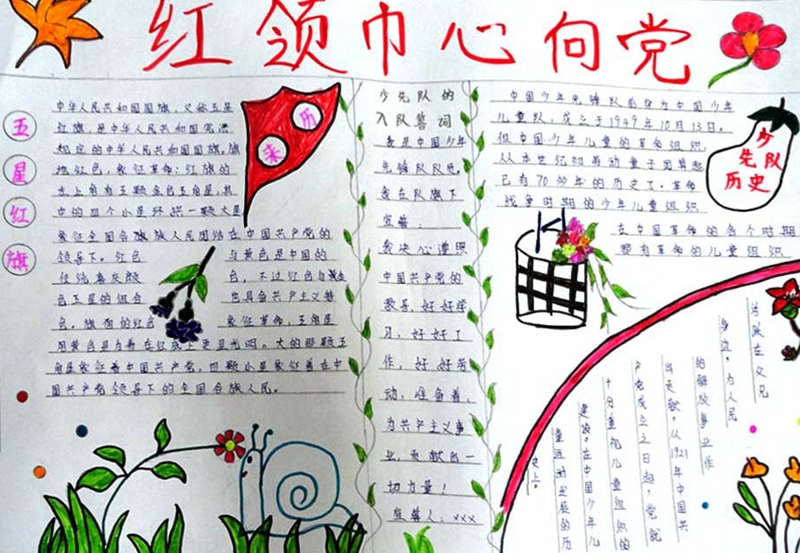 红领巾心向党
五
星
红
旗
来历
中华人民共和国国旗，又称五星
红旗，是中华人民共和国宪法
规定的中华人民共和国国旗，旗
地红色，象征革命；红旗的
左上角有五颗金色五角星，其
中的四个小星环拱一颗大星
象征全国各族人民团结在中国共产党的
领导下。红色 与黄色是中国的
传统喜庆颜 色，不过红色与黄金
色五星的组合 也具备共产主义特
色，旗面的红色 象征革命，五角星
用黄色是为着在红底上更显光明，大的那颗五
角星象征着中国共产党，四颗小星象征着在中
国共产党领导下的全国各族人民。
少先队的
入队誓词
我是中国少年
先锋队队员。
我在队旗下
宣誓：
我决心遵照
中国共产党的
教导，好好学
习，好好工
作，好好劳
动，准备着，
为共产主义事
业，贡献出一
切力量！
宣誓人：×××
少先队历史
中国少年先锋队前身为中国少年
儿童队，成立于1949年10月13日。
但中国少年儿童的革命组织
从本世纪初
已有70多年的历史了。革命
战争时期的少年儿童组织
在中国革命的各个时期
都有革命的儿童组织
活跃在父兄
身边，为人民
的解放事业作
出贡献。从1921年中国共
产党成立之日起，党就
十分重视儿童组织的
建设。在中国少年儿
童运动发展的历
史上。